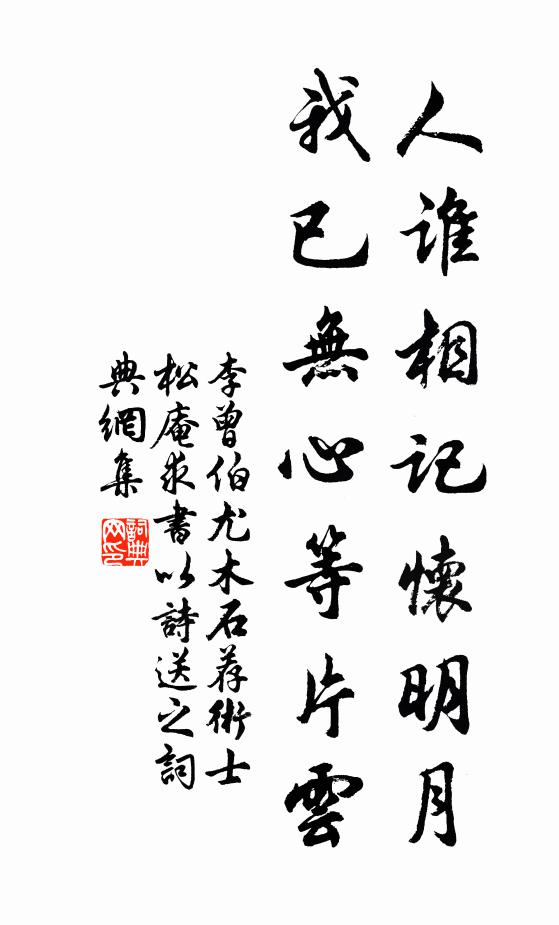 人誰相記懷明月
我已無心等片雲
李曾伯尤木石荐術士
松庵求書以詩送之詞
典網集
詞典网印